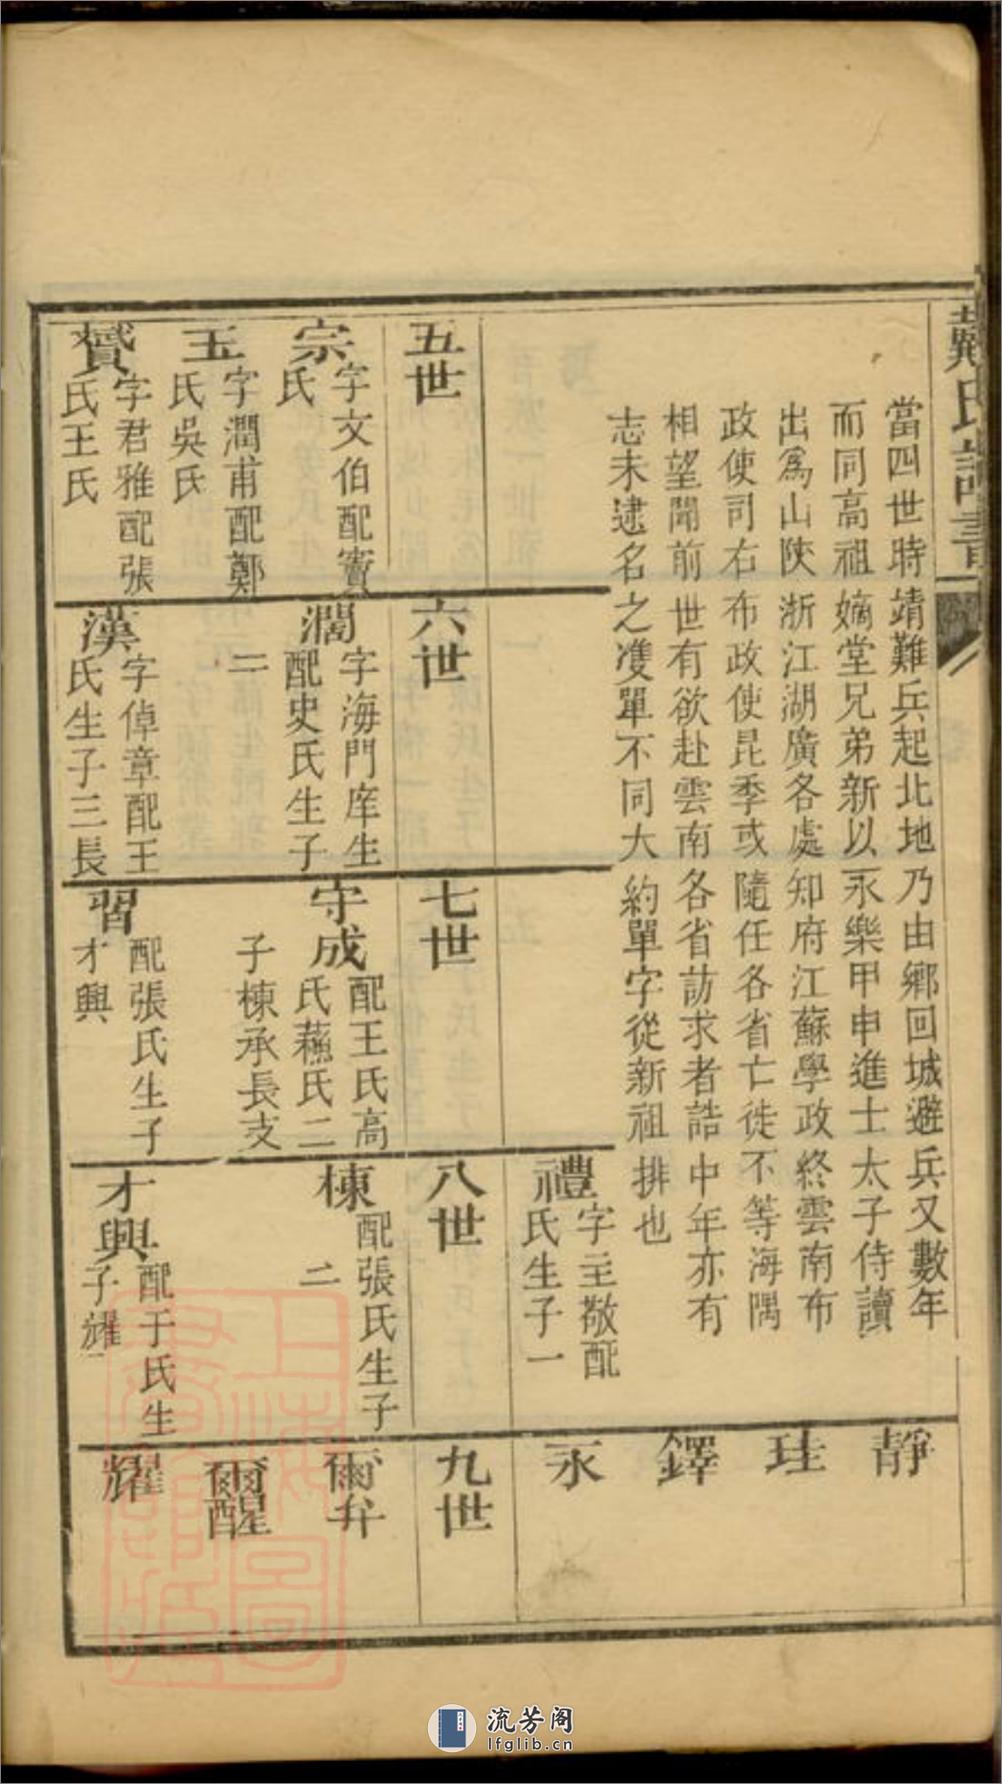 戴氏譜書
當四世時靖難兵起北地乃由鄉回城避兵又數年
而同高祖嫡堂兄弟新以永樂甲申進士太子侍讀
出爲山陝浙江湖廣各處知府江蘇學政終雲南布
政使司右布政使昆季或隨任各省亡徙不等海隅
相望聞前世有欲赴雲南各省訪求者誥中年亦有
志未逮名之單不同大約單字從新祖排也
禮
字主敬配
氏生子一
靜
珪
鐸
永
五世
宗
字文伯配竇
氏
玉
字潤甫配鄭
氏吳氏
贇
字君雅配張
氏王氏
六世
濶
字海門庠生
配史氏生子
二
漢
字倬章配王
氏生子三長
七世
守成
配王氏高
氏蘓氏二
子棟承長支
習
配張氏生子
才興
八世
棟
配張氏生子
二
才興
配于氏生
子耀
九世
爾弁
爾醒
耀
上海圖書館藏
流芳阁
lfglib.cn